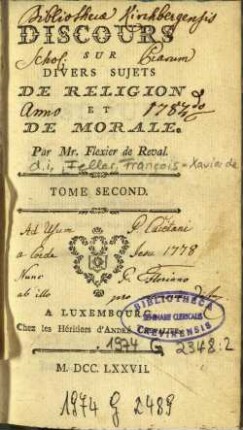 Bibliotheca Kirchbergensis
DISCOURS
Schol: SUR Piarum
DIVERS SUJETS
DE RELIGION
Anno ET 1787
DE MORALE.
Par Mr. Flexier de Reval.
d. i. Feller, François-Xavier de
TOME SECOND.
Ad Usum P. Cajetani
a Corde Jesu 1778
Nunc P. Floriano
ab illo pro
BIBLIOTHECA
SEMINARII CLERICALIS
CREVIRENSIS
A LUXEMBOURG,
Chez les Héritiers d'André Chevalier.
1974 G 2348:2
M. DCC. LXXVII.
1974 G 2489